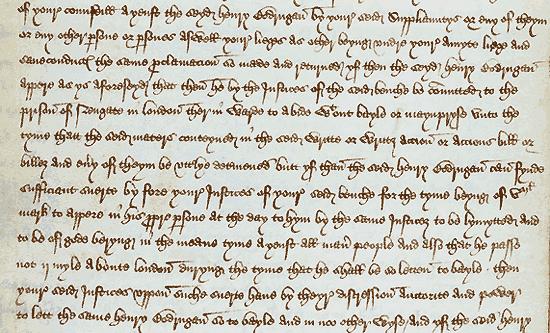 of your counseill ayenst the seyd henry Bodrugan by your seid Suppliauntys or eny of theym
or eny other persone or persones aswell your lieges as other beyng undre your amyte liege and
saveconduct the same proclamacion so made and retourned yf then the seyd henry Bodrugan
appere as ys aforeseyd that then he by the Justices of the seid benche be comitted to the
prison of Newgate in london ther in Warde to abide Wtout bayle or maynpryse unto the
tyme that the seid maters conteyned in the seid Writte or Writtes accion or accions bill or
billes and eny of theym be utterly determined butt yf than the seid henry Bodrugan can fynde
sufficient suerte by fore your Justices of your seid benche for the tyme beyng of
mark to appere in his propre persone at the day to hym by the same Justices to be lymytted and
to be of gode beryng in the meane tyme ayenst all maner people and also that he passe
not ij myle aboute london duryng the tyme that he shall be so letten to bayle then
your seid Justices uppon suche suerte have by theyr discression auctorite and power
to lett the same henry Bodrugan so to bayle and in noo other wyse and yf the seid henry